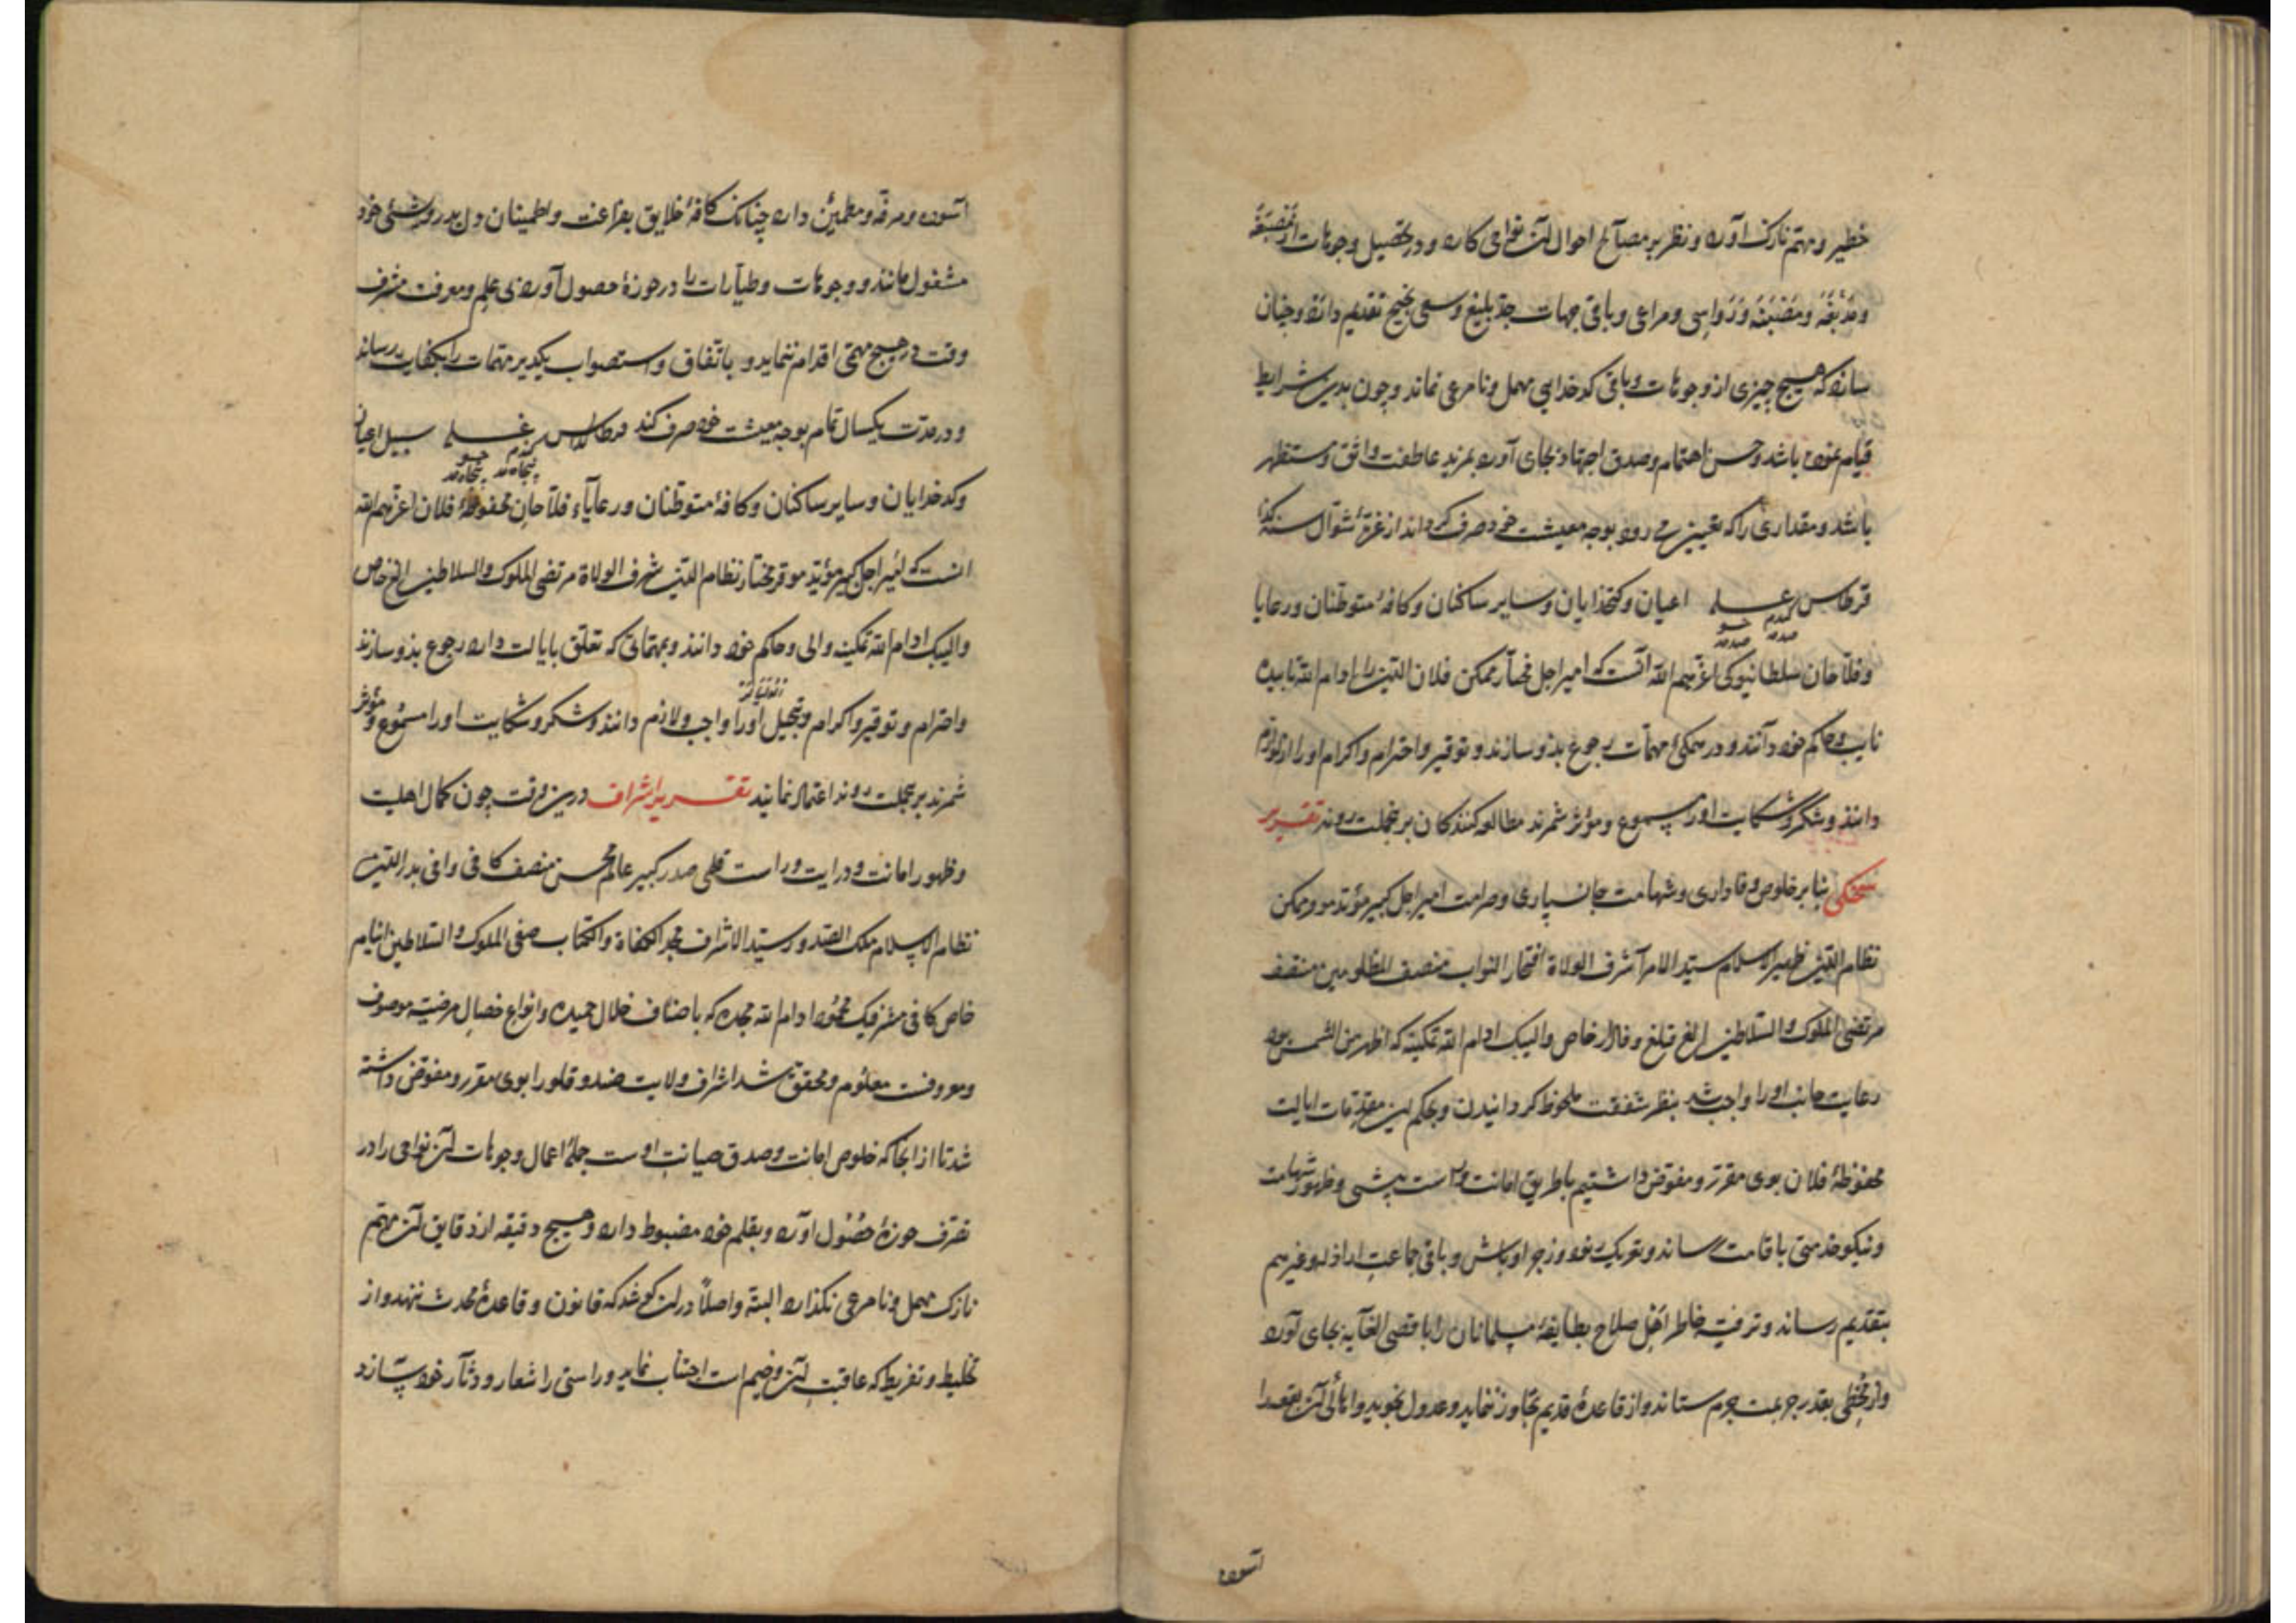 خطیر و مهتم نازک آورد و نظر بر مصالح احوال آن نواحی کارد و در تحصیل وجوهات از مصبغه
و مدبغه و مقصبه و رواسی و مراعی و باقی جهات جد بلیغ و سعی نجیح تقدیم دارد و چنان
سازد که هیچ چیزی از وجوهات و باقی کدخدایی مهمل و نامرعی نماند و چون بدین شرایط
قیام نموده باشد و حسن اهتمام و صدق اجتهاد بجای آورده بمزید عاطفت واثق و مستظهر
باشد و مقداری را که تعیین می رود بوجه معیشت خود صرف گرداند از غره شوال سنه کذا
قرطاس غله اعیان و کتخدایان و سایر ساکنان و کافه متوطنان و رعایا
گندم جو
صدمد صدمد
و فلاحان سلطانیوکی اعزهم الله آنست که امیر اجل مختار ممکن فلان الدین را ادام الله تاییده
نایب و حاکم خود دانند و در همگی مهمات رجوع بذو سازند و توقیر و احترام و اکرام او را از لوازم
دانند و شکر و شکایت او را مسموع و مؤثر شمرند مطالعه کنندگان برین جملت روند تقریر
شحنگی بنا بر خلوص وفاداری و شهامت جانسپاری و صرامت امیر اجل کبیر مؤید موقر ممکن
نظام الدین ظهیر الاسلام سید الامرآ شرف الولاة افتخار النواب منصف المظلومین منتصف
مرتضی الملوک و السلاطین الغ قتلغ وفادار خاص والیبک ادام الله تمکینه که اظهر من الشمس بود
رعایت جانب او را واجب شد بنظر شفقت ملحوظ گردانیدن و بحکم این مقدمات ایالت
محفوظه فلان بوی مقرر و مفوض داشتیم تا طریق امانت و راست پیشی و ظهور شهامت
و نیکو خدمتی باقامت رساند و تعریک نود و زجر اوباش و باقی جماعت اراذل و غیرهم
بتقدیم رساند و ترفیه خاطر اهل صلاح بطایفه مسلمانان را باقصی الغایه بجای آورد
و از مخطی بقدر جریمت جرم ستاند و از قاعده قدیم تجاوز ننماید و عدول نجوید و اهالی آن بقعه را
آسوده
آسوده و مرفه و مطمین دارد چنانک کافه خلایق بفراغت و اطمینان دل بدر و پیشه خود
مشغول مانند و وجوهات و طیارات را در حوزه حصول آورد بی علم و معرفت مشرف
وقت در هیچ مهمی اقدام ننماید و باتفاق و استصواب یکدیگر مهمات را بکفایت رساند
و در مدت یکسال تمام بوجه معیشت خود صرف کند قرطاس غله سبیل اعیان
گندم جو
پنجاه مد پنجاه مد
و کدخدایان و سایر ساکنان و کافه متوطنان و رعایاء فلاحان محفوظه فلان اعزهم الله
انست که امیر اجل کبیر مؤید موقر مختار نظام الدین شرف الولاة مرتضی الملوک و السلاطین الغ خاص
والیبک ادام الله تمکینه والی و حاکم خود دانند و بمهماتی که تعلق بایالت دارد رجوع بذو سازند
و احترام و توقیر و اکرام و تبجیل او را واجب و لازم دانند و شکر و شکایت او را مسموع و مؤثر
شمرند برین جملت روند اعتماد نمایند تقریر اشراف درین وقت چون کمال اهلیت
و ظهور امانت و درایت و راست قلمی صدر کبیر عالم محسن منصف کافی وافی بدر الدین
نظام الاسلام ملک الصدور سید الاشراف مجد الکفاة و الکتاب صفی الملوک و السلاطین اینام
خاص کافی مشرفبک محمود ادام الله مجده که باصناف خلال حمیده و انواع خصال مرضیه موصوف
و معروفست معلوم و محقق شد اشراف ولایت صندوقلو را بوی مقرر و مفوض داشته
شد تا از انجا که خلوص امانت و صدق صیانت اوست جمله اعمال و وجوهات آن نواحی را در
تصرف حوزه حصول آورد و بقلم خود مضبوط دارد و هیچ دقیقه از دقایق آن مهم
نازک مهمل و نامرعی نگذارد البته و اصلاً در آن کوشد که قانون و قاعده محدث ننهد و از
تخلیط و تفریط که عاقبت آن وخیم است اجتناب نماید و راستی را شعار و دثار خود سازد